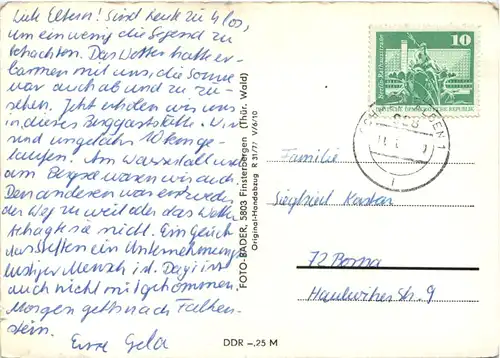 Liebe Eltern! Sind heute zu 4 los,
um ein wenig die Gegend zu
betrachten. Das Wetter hatte er-
barmen mit uns, die Sonne
war auch ab und zu zu
sehen. Jetzt erholen wir uns
in dieser Berggaststätte. Wir
sind ungefähr 10 km ge-
laufen. Am Wasserfall und
am Bergsee waren wir auch.
Den anderen war entweder
der Weg zu weit oder das Wetter
behagte sie nicht. Ein Glück
das Steffen ein Unternehmungs-
lustiger Mensch ist. Dagi ist
auch nicht mitgekommen.
Morgen gehts nach Falken-
stein.
Eure Gela
FOTO-BADER, 5803 Finsterbergen (Thür. Wald)
Original-Handabzug R 31/77 V/6/10
DDR –,25 M
10
Berlin·Rathausstrasse
DEUTSCHE DEMOKRATISCHE REPUBLIK
Familie
Siegfried Kastar
72 Borna
Haulwitzer Str. 9